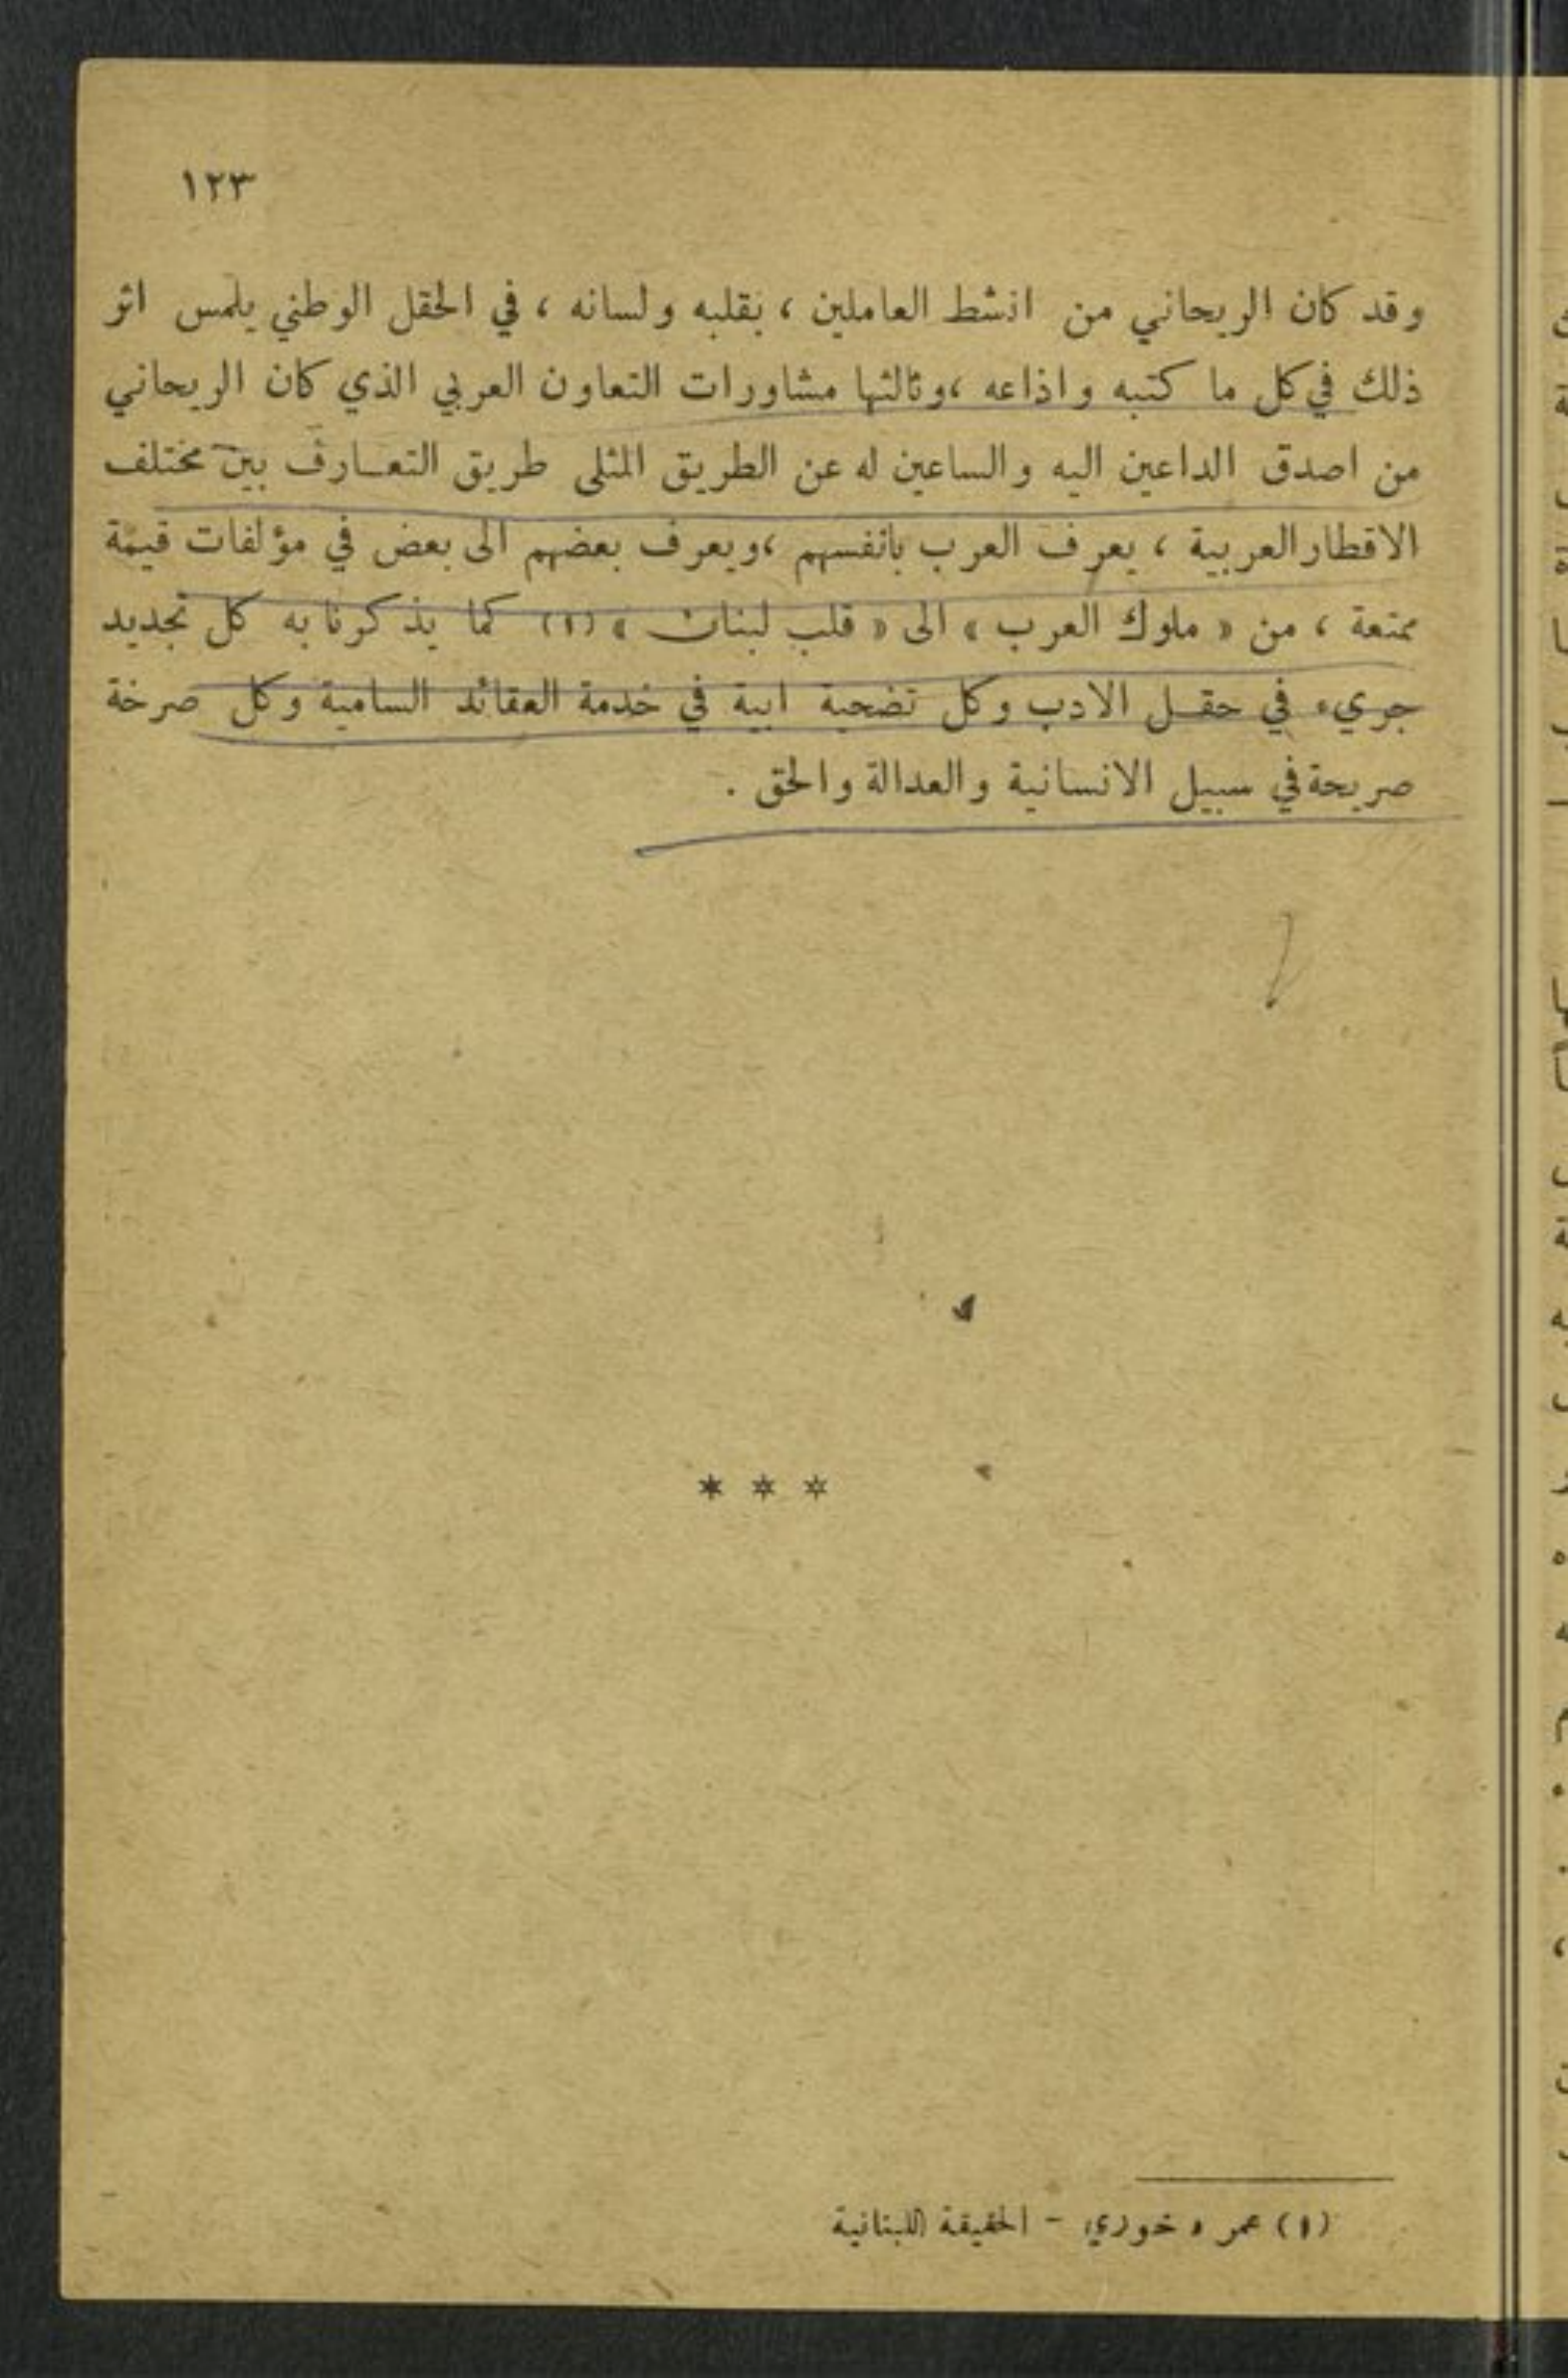 ١٢٣
وقد كان الريحاني من انشط العاملين ، بقلبه ولسانه ، في الحقل الوطني يلمس اثر
ذلك في كل ما كتبه واذاعه ،وثالثها مشاورات التعاون العربي الذي كان الريحاني
من اصدق الداعين اليه والساعين له عن الطريق المثلى طريق التعـارف بين مختلف
الاقطار العربية ، يعرف العرب بانفسهم ،ويعرف بعضهم الى بعض في مؤلفات قيمة
ممتعة ، من « ملوك العرب » الى « قلب لبنان » (١) كما يذكرنا به كل تجديد
جريء في حقـل الادب وكل تضحية ابية في خدمة العقائد السامية وكل صرخة
صريحة في سبيل الانسانية والعدالة والحق .
* * *
(١) عمر خوري - الحقيقة اللبنانية